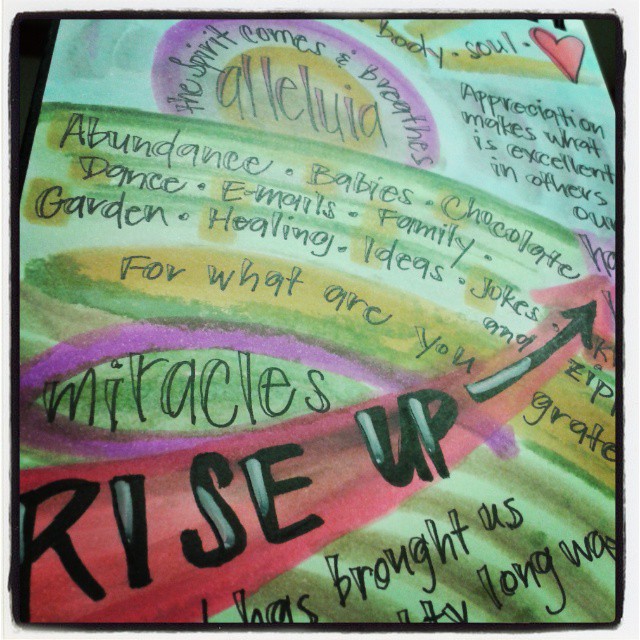 body · soul ·
the spirit comes & breathes
alleluia
Appreciation
makes what
is excellent
in others
our
Abundance · Babies · Chocolate
Dance · E-mails · Family ·
Garden · Healing · Ideas · Jokes ·
For what are you
and
grate
miracles
RISE UP →
has brought us
long